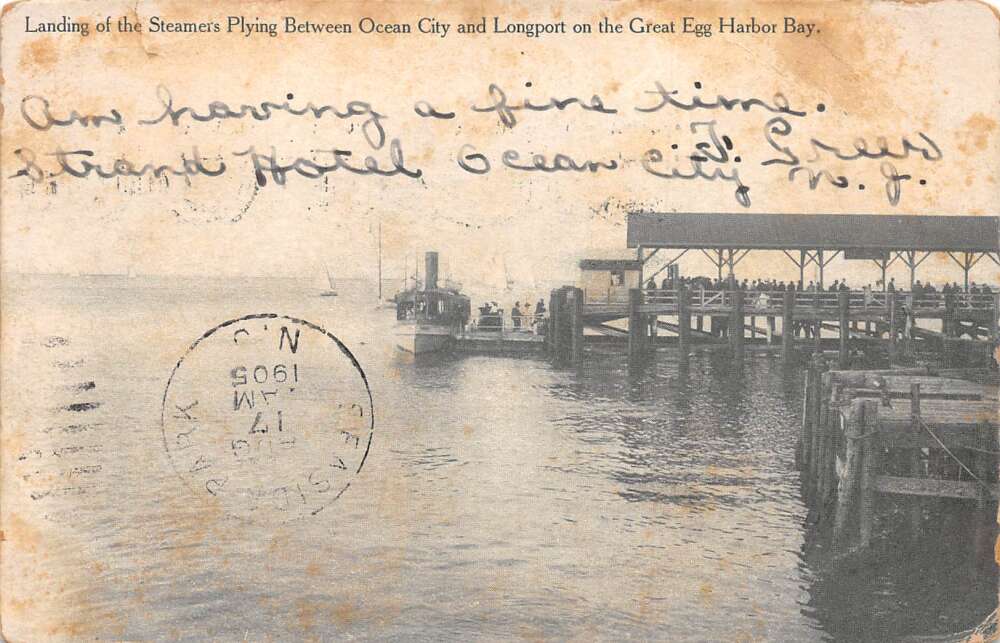 Landing of the Steamers Plying Between Ocean City and Longport on the Great Egg Harbor Bay.
Am having a fine time.
T. Green
Strand Hotel Ocean City N. J.
SEASIDE PARK
AUG
17
AM
1905
N.J.